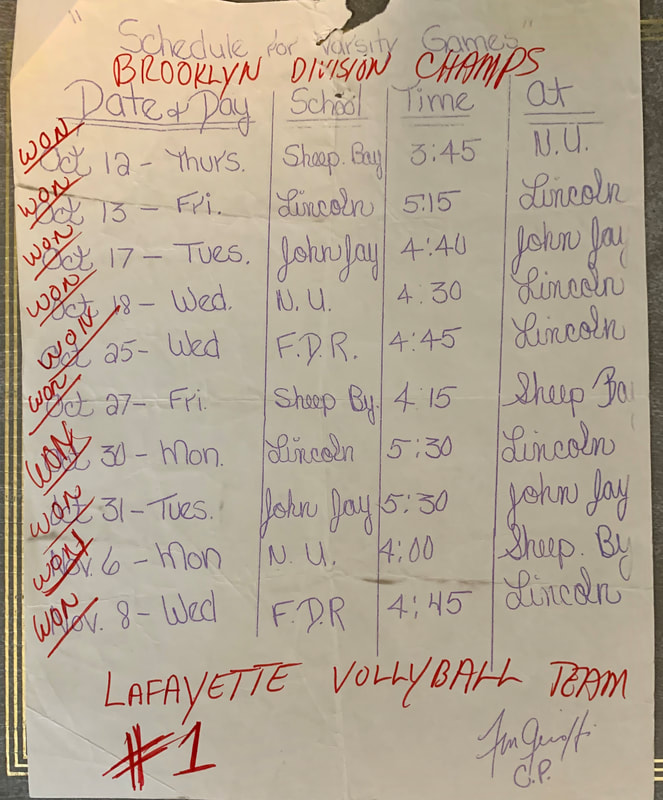 "Schedule for Varsity Games"
BROOKLYN DIVISION CHAMPS
Date & Day School Time At
WON Oct 12 - Thurs. Sheep. Bay 3:45 N.U.
WON Oct 13 - Fri. Lincoln 5:15 Lincoln
WON Oct 17 - Tues. John Jay 4:40 John Jay
WON Oct 18 - Wed. N.U. 4:30 Lincoln
WON Oct 25 - Wed F.D.R. 4:45 Lincoln
WON Oct 27 - Fri. Sheep By. 4:15 Sheep Ba
WON Oct 30 - Mon. Lincoln 5:30 Lincoln
WON Oct 31 - Tues. John Jay 5:30 John Jay
WON Nov. 6 - Mon N.U. 4:00 Sheep. By
WON Nov. 8 - Wed F.D.R 4:45 Lincoln
LAFAYETTE VOLLYBALL TEAM
#1
C.P.